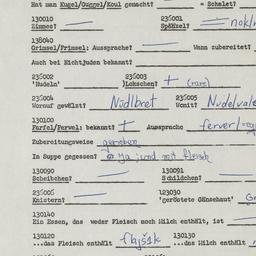 Hat man Kugel/Guggel/Koul gemacht? = Schalet?
130010 236001
Zimmes? Spätzel?
138040
Grimsel/Frimsel: Aussprache? Wann zubereitet?
Auch bei Nichtjuden bekannt?
236002 236003
'Nudeln' )Lokschen? + (rare)
236004 236005
Worauf gewälzt? Nüdlbret Womit? Nudelvale
130100
Farfel/Ferwel: bekannt? + Aussprache ferverl
Zubereitungsweise gerieben
In Suppe gegessen? Ja ; und mit fleisch
130090 130091
Scheibchen? Schildchen?
236006 123030
Knistern? 'geröstete Gänsehaut'
130140
Ein Essen, das weder Fleisch noch Milch enthält, ist
130120 130130
...das Fleisch enthält flajšik ...das Milch enthält